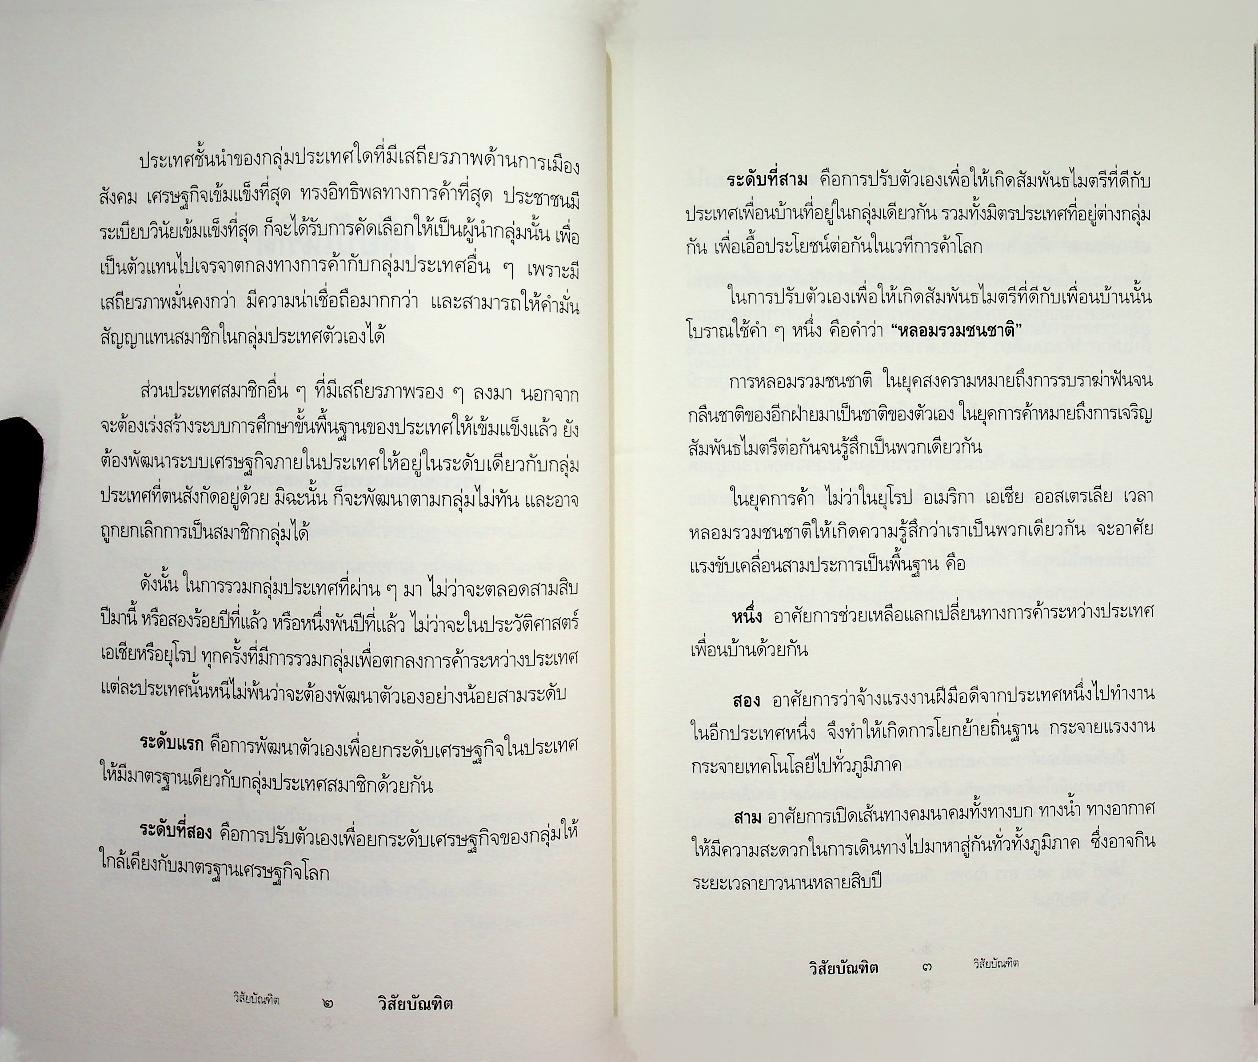 ประเทศชั้นนำของกลุ่มประเทศใดที่มีเสถียรภาพด้านการเมือง
สังคม เศรษฐกิจเข้มแข็งที่สุด ทรงอิทธิพลทางการค้าที่สุด ประชาชนมี
ระเบียบวินัยเข้มแข็งที่สุด ก็จะได้รับการคัดเลือกให้เป็นผู้นำกลุ่มนั้น เพื่อ
เป็นตัวแทนไปเจรจาตกลงทางการค้ากับกลุ่มประเทศอื่น ๆ เพราะมี
เสถียรภาพมั่นคงกว่า มีความน่าเชื่อถือมากกว่า และสามารถให้คำมั่น
สัญญาแทนสมาชิกในกลุ่มประเทศตัวเองได้
ส่วนประเทศสมาชิกอื่น ๆ ที่มีเสถียรภาพรอง ๆ ลงมา นอกจาก
จะต้องเร่งสร้างระบบการศึกษาขั้นพื้นฐานของประเทศให้เข้มแข็งแล้ว ยัง
ต้องพัฒนาระบบเศรษฐกิจภายในประเทศให้อยู่ในระดับเดียวกับกลุ่ม
ประเทศที่ตนสังกัดอยู่ด้วย มิฉะนั้น ก็จะพัฒนาตามกลุ่มไม่ทัน และอาจ
ถูกยกเลิกการเป็นสมาชิกกลุ่มได้
ดังนั้น ในการรวมกลุ่มประเทศที่ผ่าน ๆ มา ไม่ว่าจะตลอดสามสิบ
ปีมานี้ หรือสองร้อยปีที่แล้ว หรือหนึ่งพันปีที่แล้ว ไม่ว่าจะในประวัติศาสตร์
เอเชียหรือยุโรป ทุกครั้งที่มีการรวมกลุ่มเพื่อตกลงการค้าระหว่างประเทศ
แต่ละประเทศนั้นหนีไม่พ้นว่าจะต้องพัฒนาตัวเองอย่างน้อยสามระดับ
ระดับแรก คือการพัฒนาตัวเองเพื่อยกระดับเศรษฐกิจในประเทศ
ให้มีมาตรฐานเดียวกับกลุ่มประเทศสมาชิกด้วยกัน
ระดับที่สอง คือการปรับตัวเองเพื่อยกระดับเศรษฐกิจของกลุ่มให้
ใกล้เคียงกับมาตรฐานเศรษฐกิจโลก
วิสัยบัณฑิต ๒ วิสัยบัณฑิต
ระดับที่สาม คือการปรับตัวเองเพื่อให้เกิดสัมพันธไมตรีที่ดีกับ
ประเทศเพื่อนบ้านที่อยู่ในกลุ่มเดียวกัน รวมทั้งมิตรประเทศที่อยู่ต่างกลุ่ม
กัน เพื่อเอื้อประโยชน์ต่อกันในเวทีการค้าโลก
ในการปรับตัวเองเพื่อให้เกิดสัมพันธไมตรีที่ดีกับเพื่อนบ้านนั้น
โบราณใช้คำ ๆ หนึ่ง คือคำว่า “หลอมรวมชนชาติ”
การหลอมรวมชนชาติ ในยุคสงครามหมายถึงการรบราฆ่าฟันจน
กลืนชาติของอีกฝ่ายมาเป็นชาติของตัวเอง ในยุคการค้าหมายถึงการเจริญ
สัมพันธไมตรีต่อกันจนรู้สึกเป็นพวกเดียวกัน
ในยุคการค้า ไม่ว่าในยุโรป อเมริกา เอเชีย ออสเตรเลีย เวลา
หลอมรวมชนชาติให้เกิดความรู้สึกว่าเราเป็นพวกเดียวกัน จะอาศัย
แรงขับเคลื่อนสามประการเป็นพื้นฐาน คือ
หนึ่ง อาศัยการช่วยเหลือแลกเปลี่ยนทางการค้าระหว่างประเทศ
เพื่อนบ้านด้วยกัน
สอง อาศัยการว่าจ้างแรงงานฝีมือดีจากประเทศหนึ่งไปทำงาน
ในอีกประเทศหนึ่ง จึงทำให้เกิดการโยกย้ายถิ่นฐาน กระจายแรงงาน
กระจายเทคโนโลยีไปทั่วภูมิภาค
สาม อาศัยการเปิดเส้นทางคมนาคมทั้งทางบก ทางน้ำ ทางอากาศ
ให้มีความสะดวกในการเดินทางไปมาหาสู่กันทั่วทั้งภูมิภาค ซึ่งอาจกิน
ระยะเวลายาวนานหลายสิบปี
วิสัยบัณฑิต ๓ วิสัยบัณฑิต